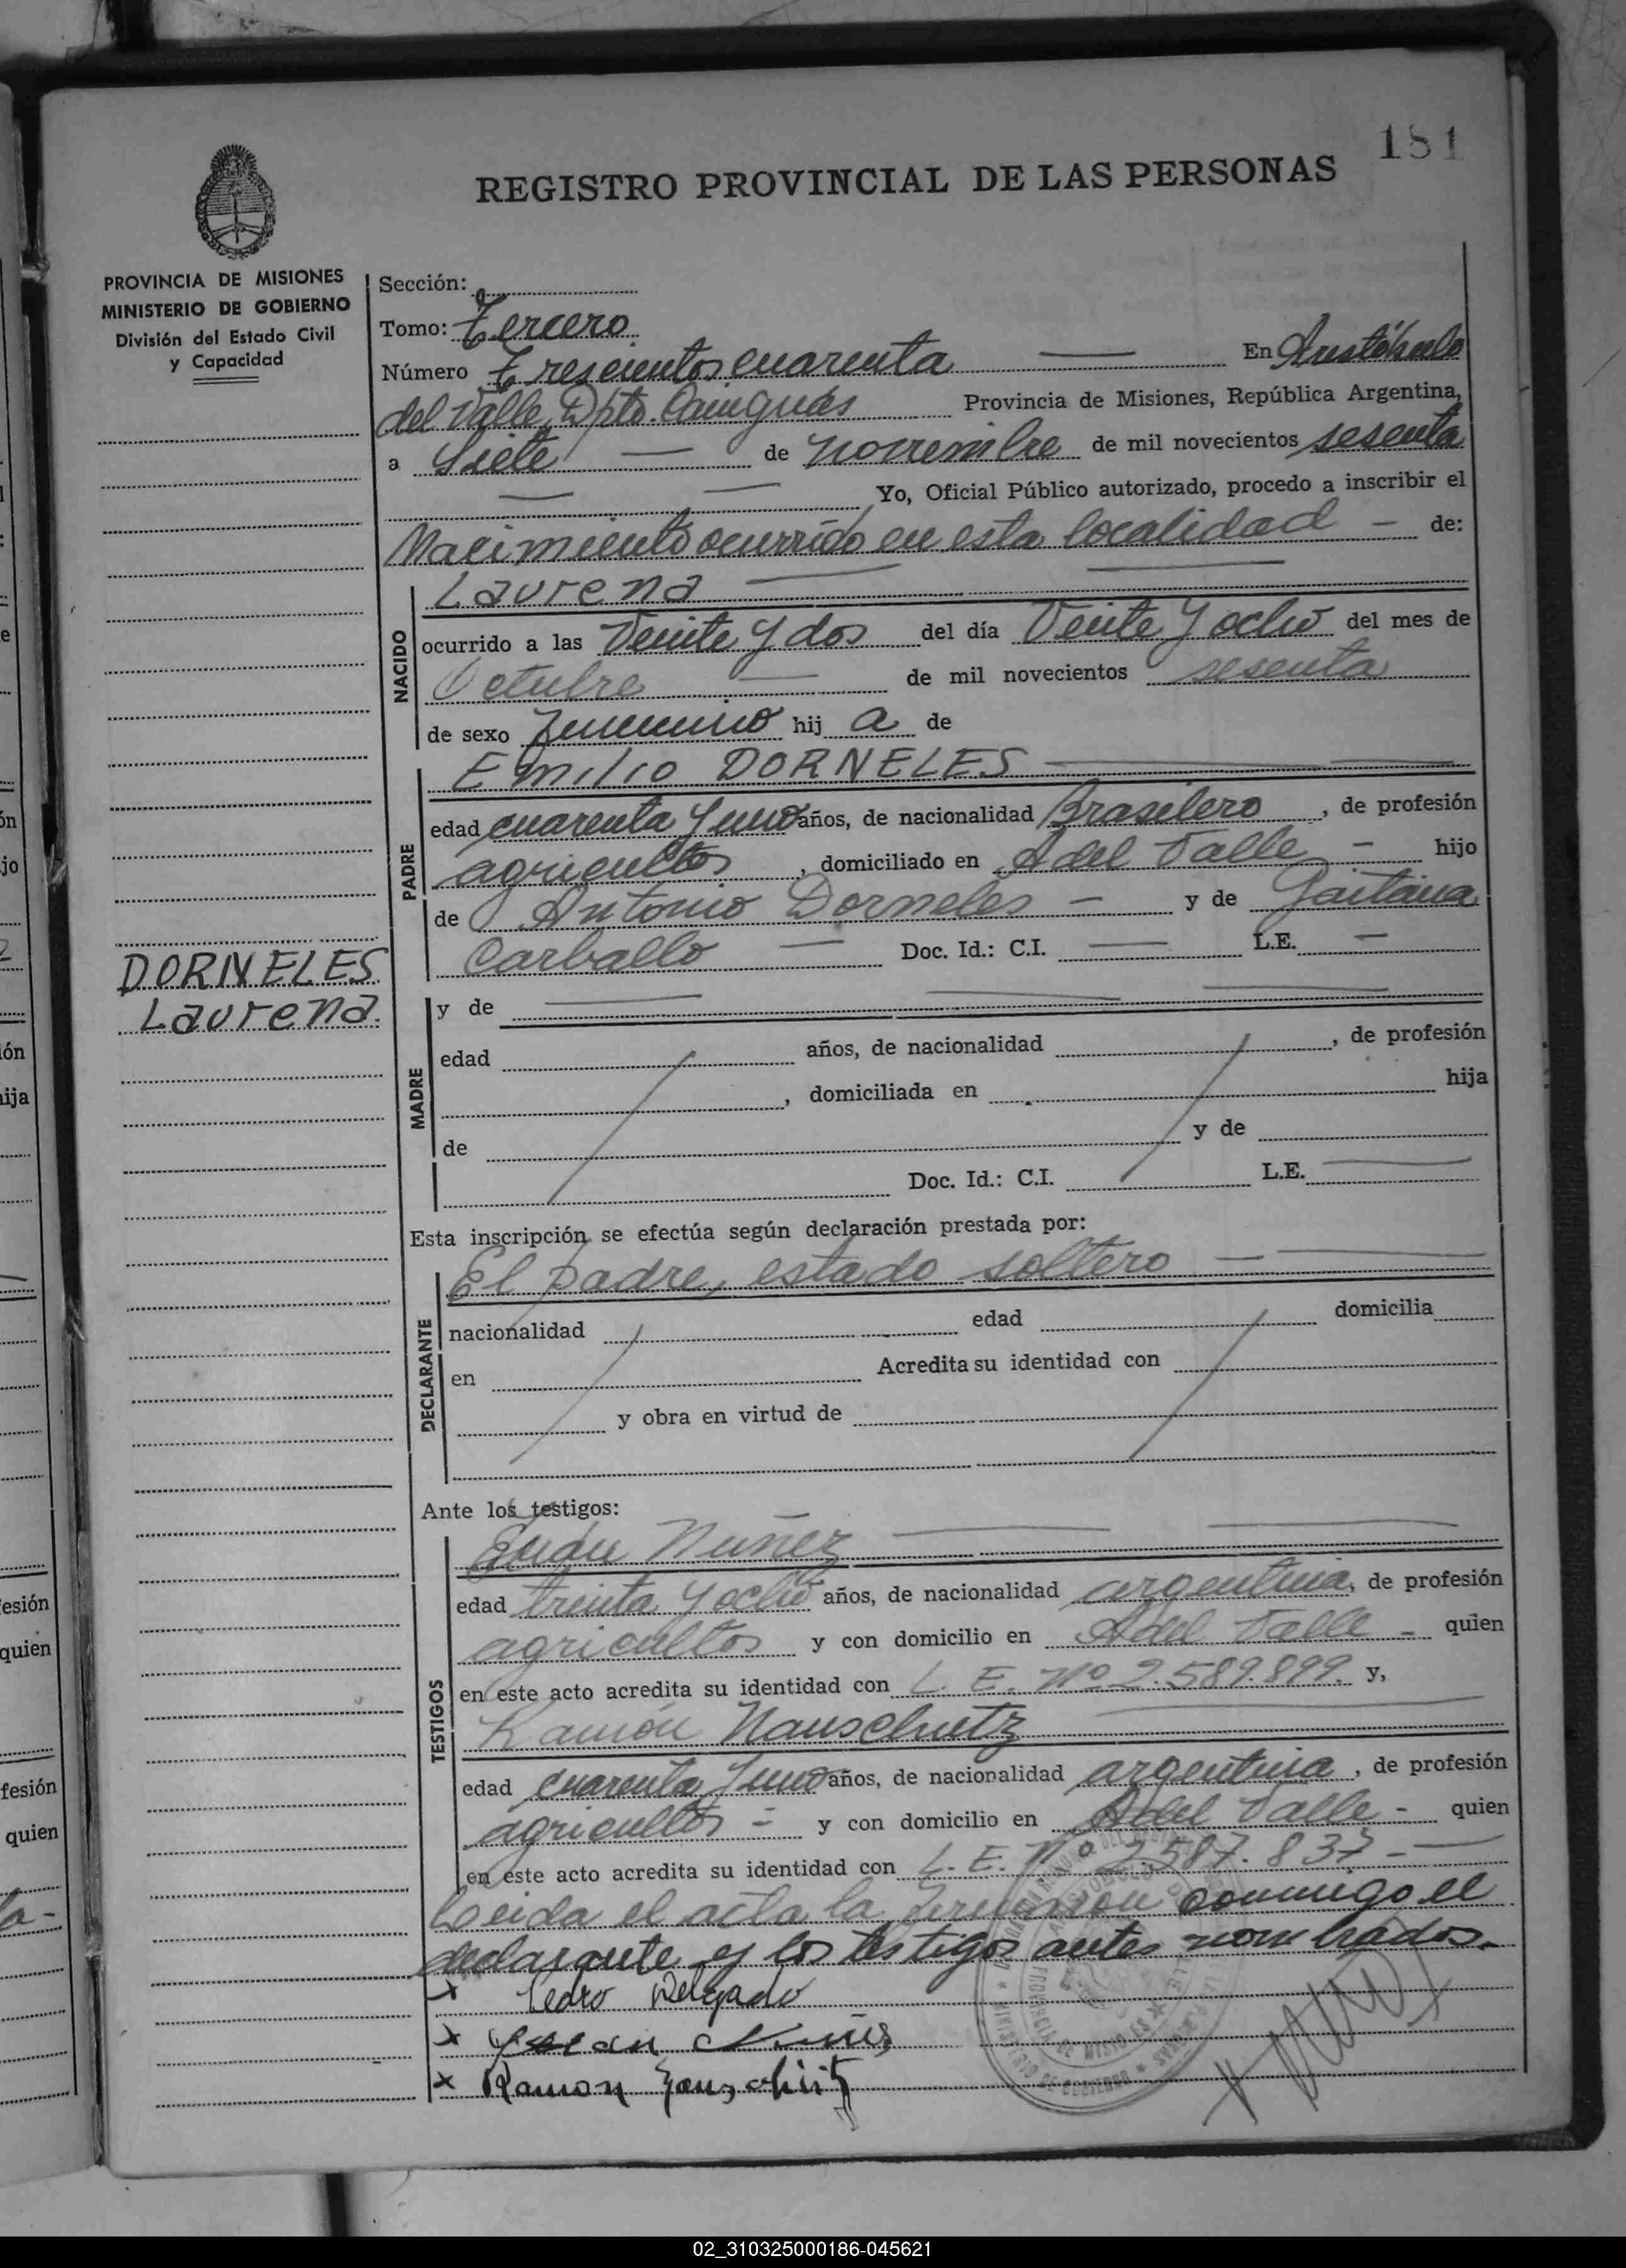 181
REGISTRO PROVINCIAL DE LAS PERSONAS
PROVINCIA DE MISIONES
MINISTERIO DE GOBIERNO
División del Estado Civil
y Capacidad
Sección:
Tomo: Tercero
Número Trescientos cuarenta En Aristóbulo
del Valle, Dpto. Cainguás Provincia de Misiones, República Argentina,
a Siete de noviembre de mil novecientos sesenta
Yo, Oficial Público autorizado, procedo a inscribir el
Nacimiento ocurrido en esta localidad - de:
NACIDO
Laurena
ocurrido a las Veinte y dos del día Veinte y ocho del mes de
Octubre de mil novecientos sesenta
de sexo Femenino hij a de
PADRE
Emilio DORNELES
edad cuarenta y uno años, de nacionalidad Brasilero, de profesión
agricultor, domiciliado en A del Valle - hijo
de Antonio Dorneles - y de Gaitana
Carballo Doc. Id.: C.I. L.E.
DORNELES
Laurena.
MADRE
y de
edad años, de nacionalidad , de profesión
, domiciliada en hija
de y de
Doc. Id.: C.I. L.E.
Esta inscripción se efectúa según declaración prestada por:
DECLARANTE
El padre, estado soltero
nacionalidad edad domicilia
en Acredita su identidad con
y obra en virtud de
Ante los testigos:
TESTIGOS
Nuñez
edad treinta y ocho años, de nacionalidad argentina, de profesión
agricultor y con domicilio en A del Valle - quien
en este acto acredita su identidad con L. E. Nº 2.589.899. y,
Ramón Hauschutz
edad cuarenta y uno años, de nacionalidad argentina, de profesión
agricultor - y con domicilio en A del Valle - quien
en este acto acredita su identidad con L. E. Nº 2.587.837 -
Leida el acta la firmaron conmigo el
declarante y los testigos antes nombrados.
x Pedro Delgado
x Nuñez
x Ramon
02_310325000186-045621